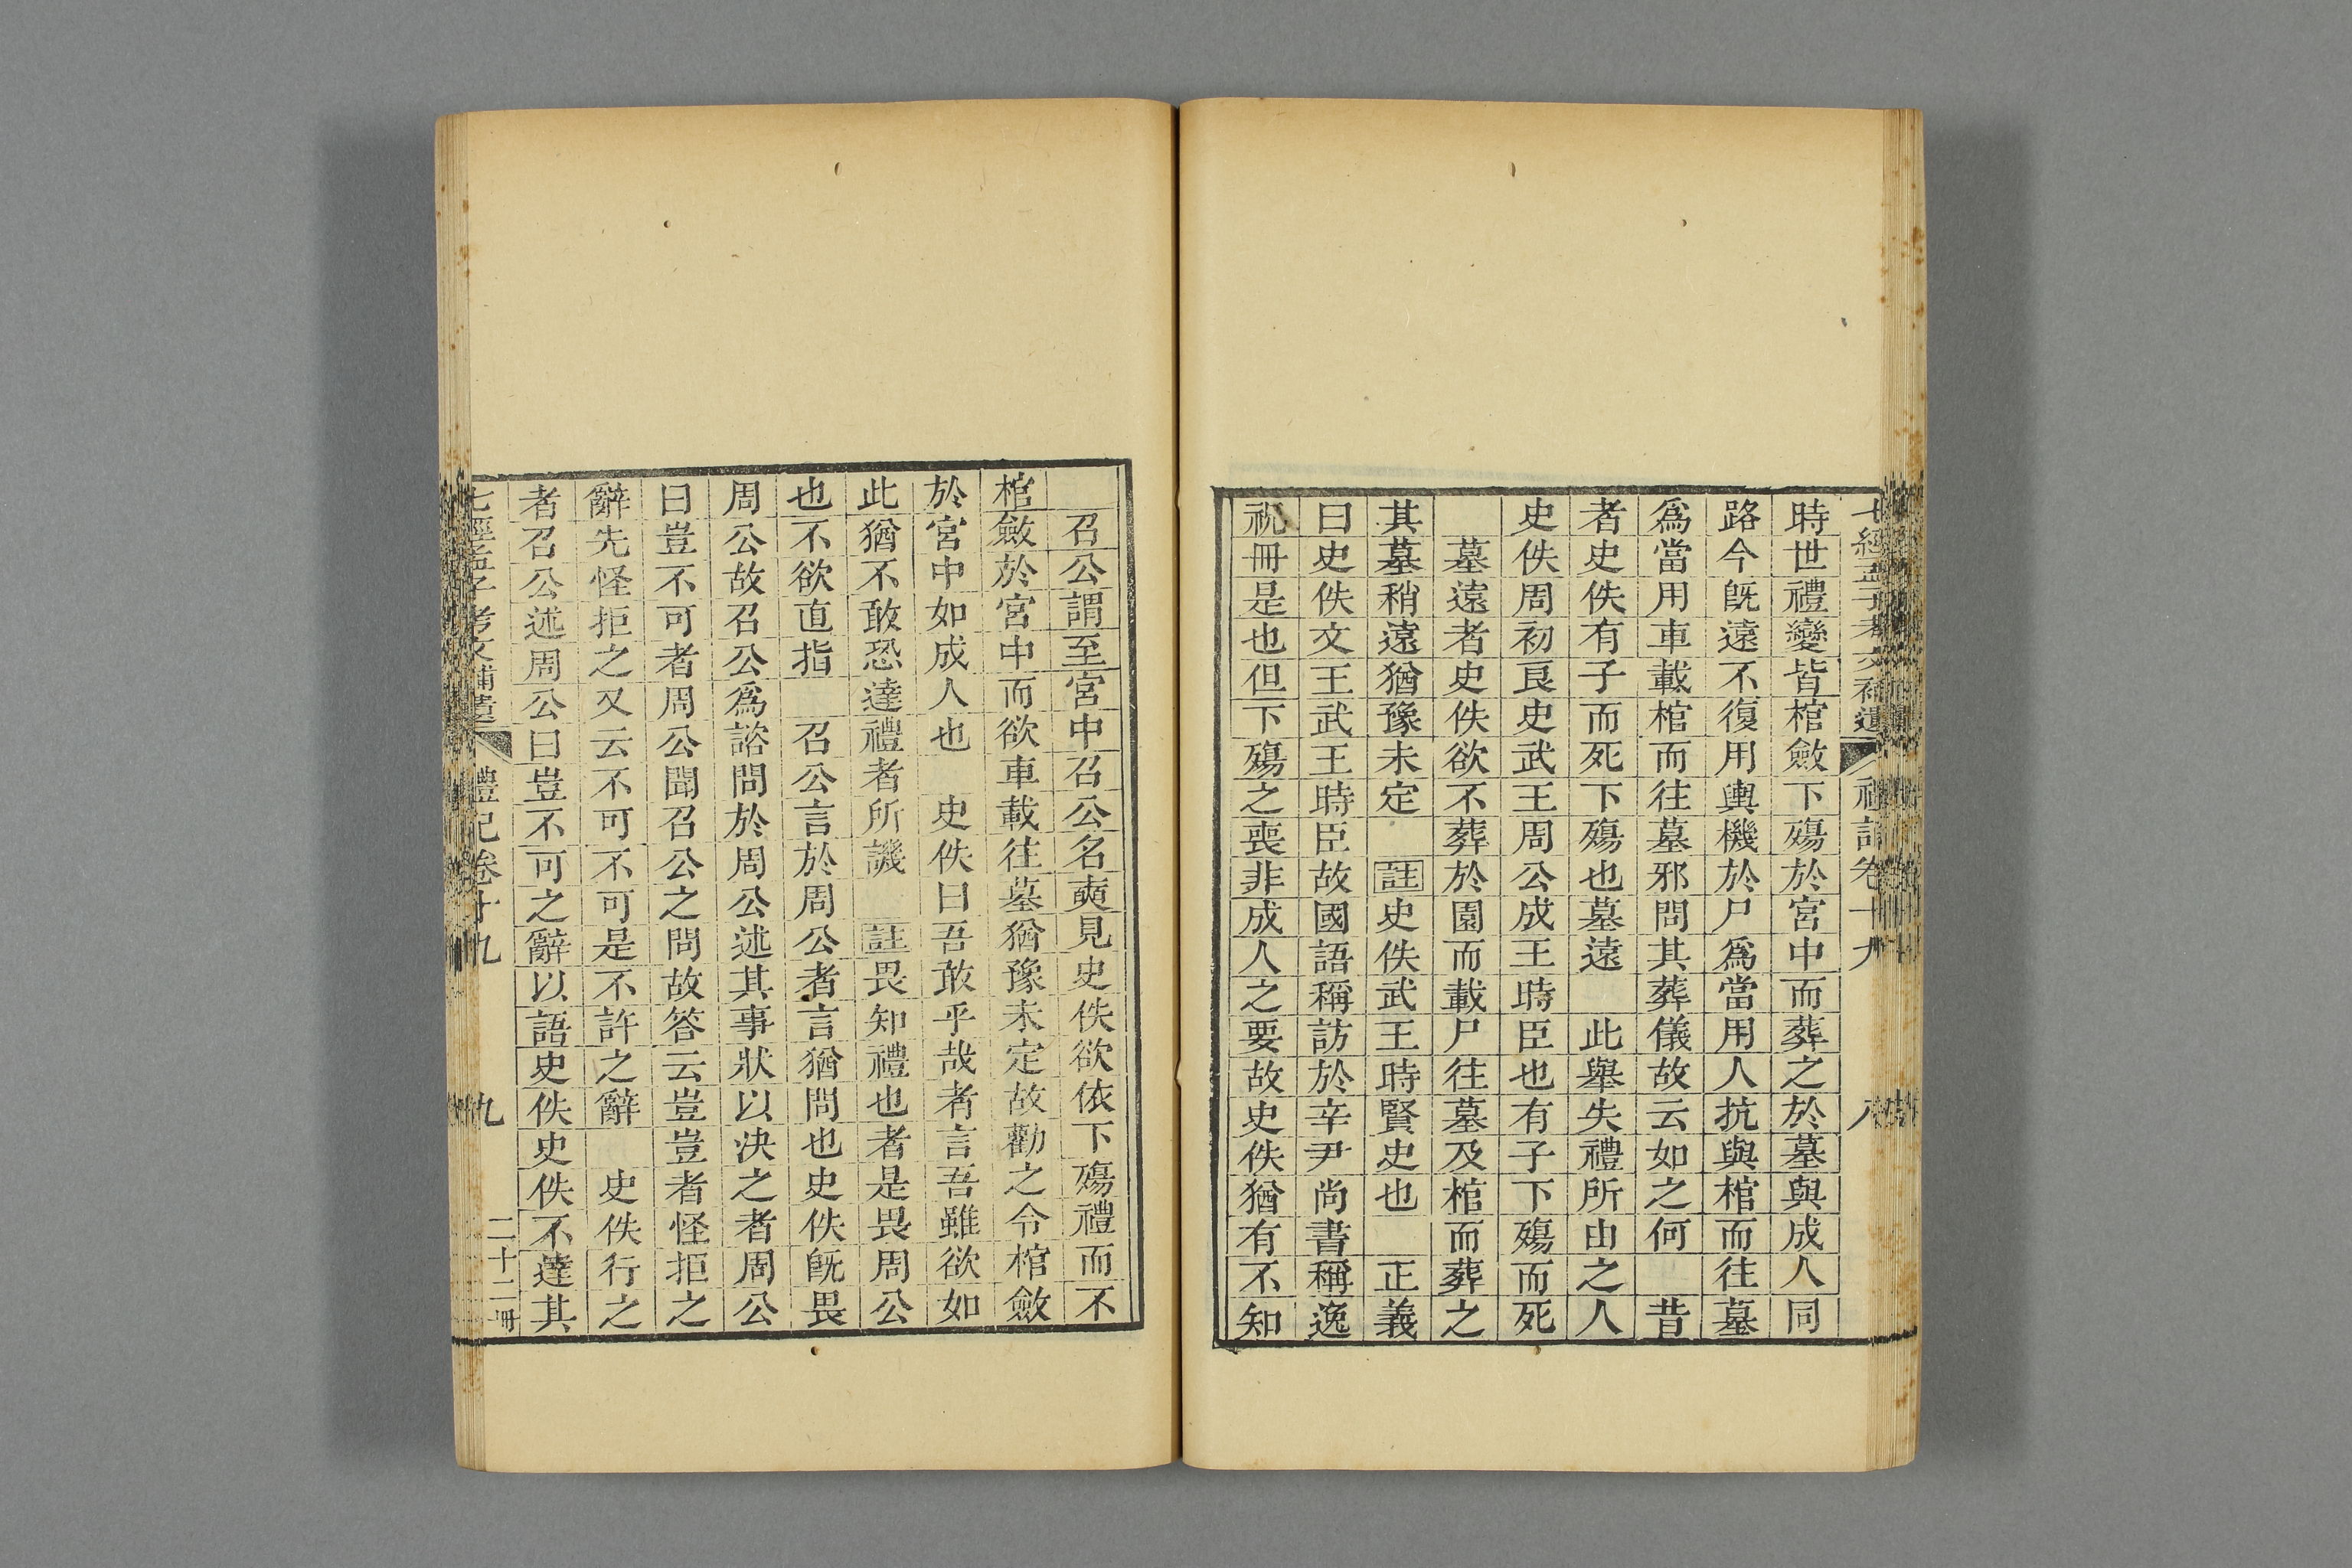 七經孟子考文補遺 禮記卷十九 八
時世禮變皆棺斂下殤於宮中而葬之於墓與成人同
路今既遠不復用輿機於尸爲當用人抗與棺而往墓
爲當用車載棺而往墓邪問其葬儀故云如之何 昔
者史佚有子而死下殤也墓遠 此舉失禮所由之人
史佚周初良史武王周公成王時臣也有子下殤而死
墓遠者史佚欲不葬於園而載尸往墓及棺而葬之
其墓稍遠猶豫未定 註史佚武王時賢史也 正義
曰史佚文王武王時臣故國語稱訪於辛尹尚書稱逸
祝冊是也但下殤之喪非成人之要故史佚猶有不知
召公謂至宮中召公名奭見史佚欲依下殤禮而不
棺斂於宮中而欲車載往墓猶豫未定故勸之令棺斂
於宮中如成人也 史佚曰吾敢乎哉者言吾雖欲如
此猶不敢恐違禮者所譏 註畏知禮也者是畏周公
也不欲直指 召公言於周公者言猶問也史佚既畏
周公故召公爲諮問於周公述其事狀以決之者周公
曰豈不可者周公聞召公之問故答云豈豈者怪拒之
辭先怪拒之又云不可不可是不許之辭 史佚行之
者召公述周公曰豈不可之辭以語史佚史佚不達其
七經孟子考文補遺 禮記卷十九 九 二十二冊